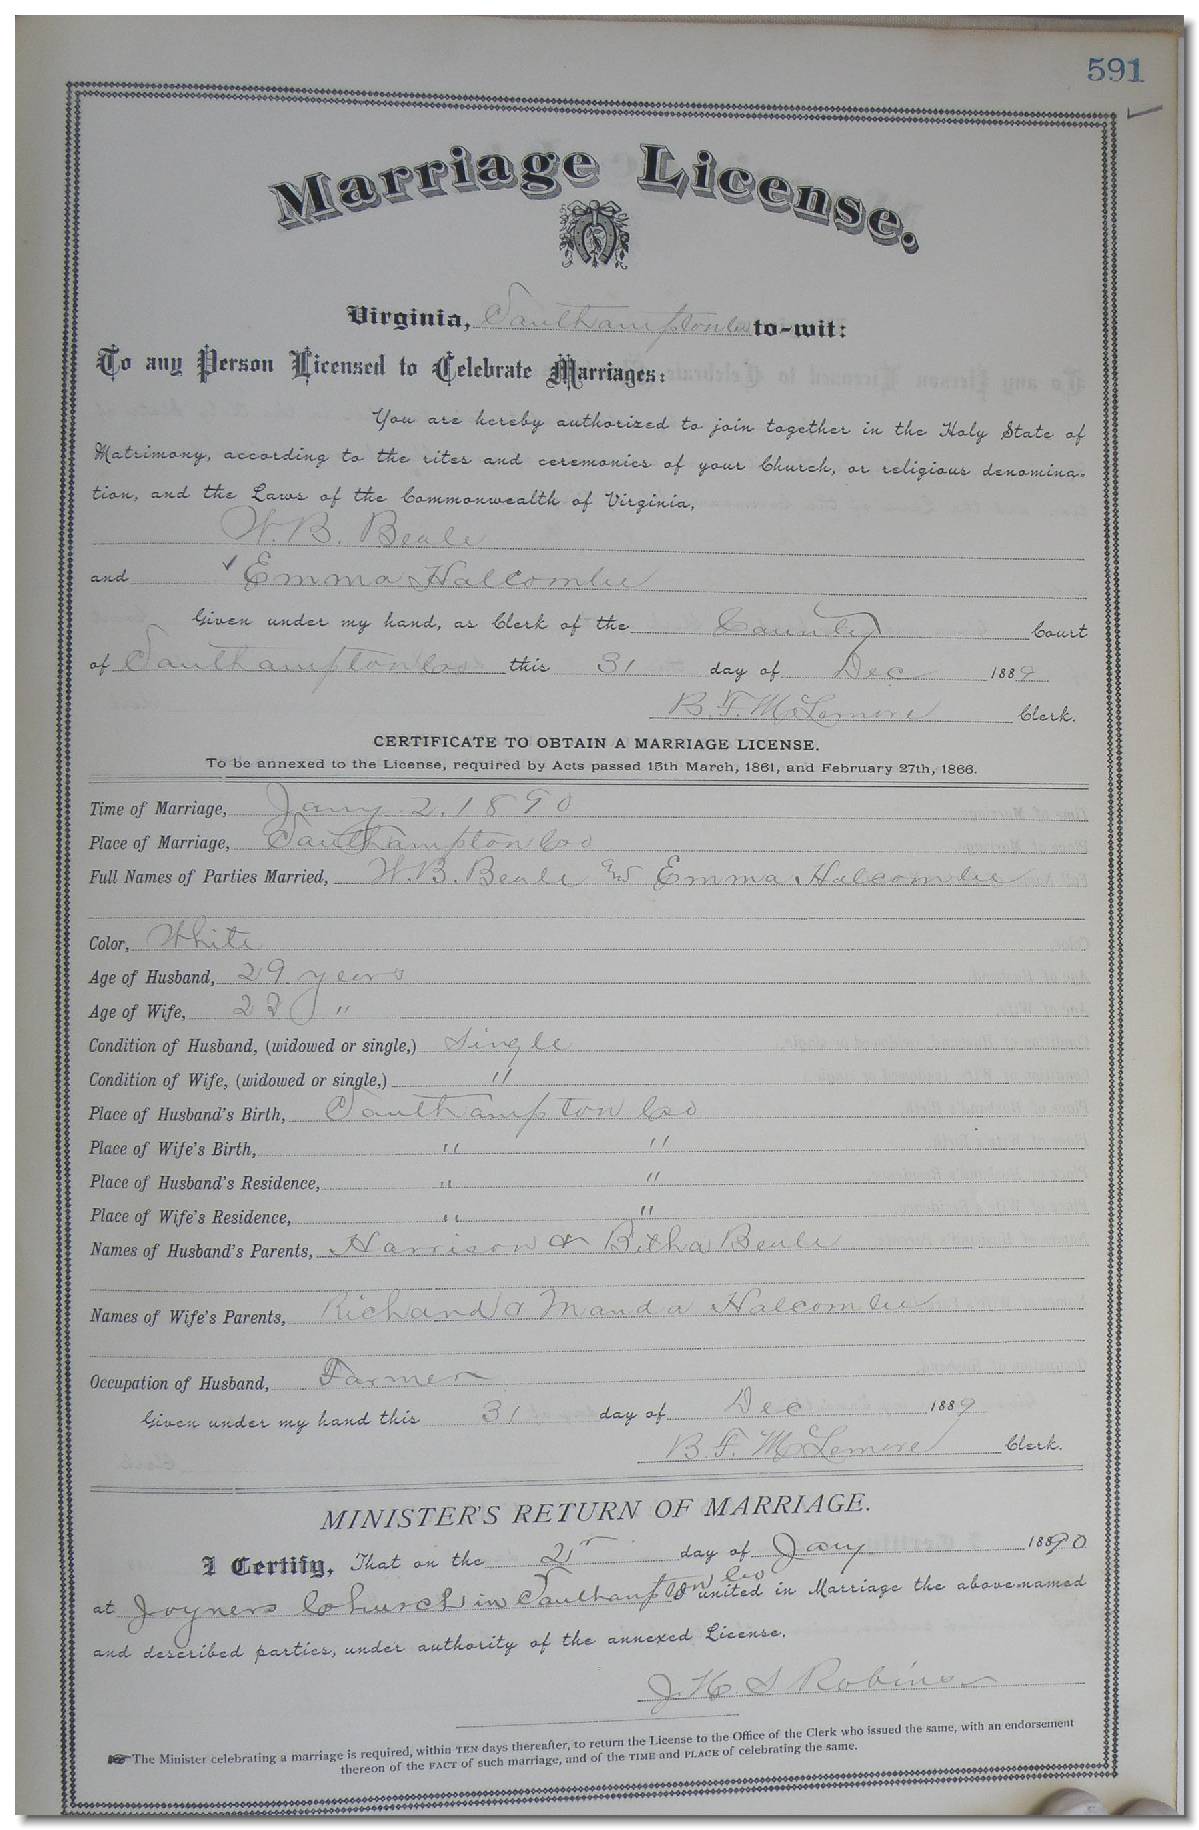 591
Marriage License.
Virginia, Southampton Co to-wit:
To any Person Licensed to Celebrate Marriages:
You are hereby authorized to join together in the Holy State of
Matrimony, according to the rites and ceremonies of your Church, or religious denomina-
tion, and the Laws of the Commonwealth of Virginia,
W. B. Beale
and Emma Halcombe
Given under my hand, as Clerk of the County Court
of Southampton Co this 31 day of Dec 1889
B. F. McLemore Clerk.
CERTIFICATE TO OBTAIN A MARRIAGE LICENSE.
To be annexed to the License, required by Acts passed 15th March, 1861, and February 27th, 1866.
Time of Marriage, Jany 2, 1890
Place of Marriage, Southampton Co
Full Names of Parties Married, W. B. Beale and Emma Halcombe
Color, White
Age of Husband, 29 years
Age of Wife, 22 "
Condition of Husband, (widowed or single,) Single
Condition of Wife, (widowed or single,) "
Place of Husband's Birth, Southampton Co
Place of Wife's Birth, " "
Place of Husband's Residence, " "
Place of Wife's Residence, " "
Names of Husband's Parents, Harrison & Bitha Beale
Names of Wife's Parents, Richard & Manda Halcombe
Occupation of Husband, Farmer
Given under my hand this 31 day of Dec 1889
B. F. McLemore Clerk.
MINISTER'S RETURN OF MARRIAGE.
I Certify, That on the 2 day of Jany 1890
at Joyners Church in Southampton Co I united in Marriage the above-named
and described parties, under authority of the annexed License.
J. H. S Robinson
The Minister celebrating a marriage is required, within TEN days thereafter, to return the License to the Office of the Clerk who issued the same, with an endorsement
thereon of the FACT of such marriage, and of the TIME and PLACE of celebrating the same.